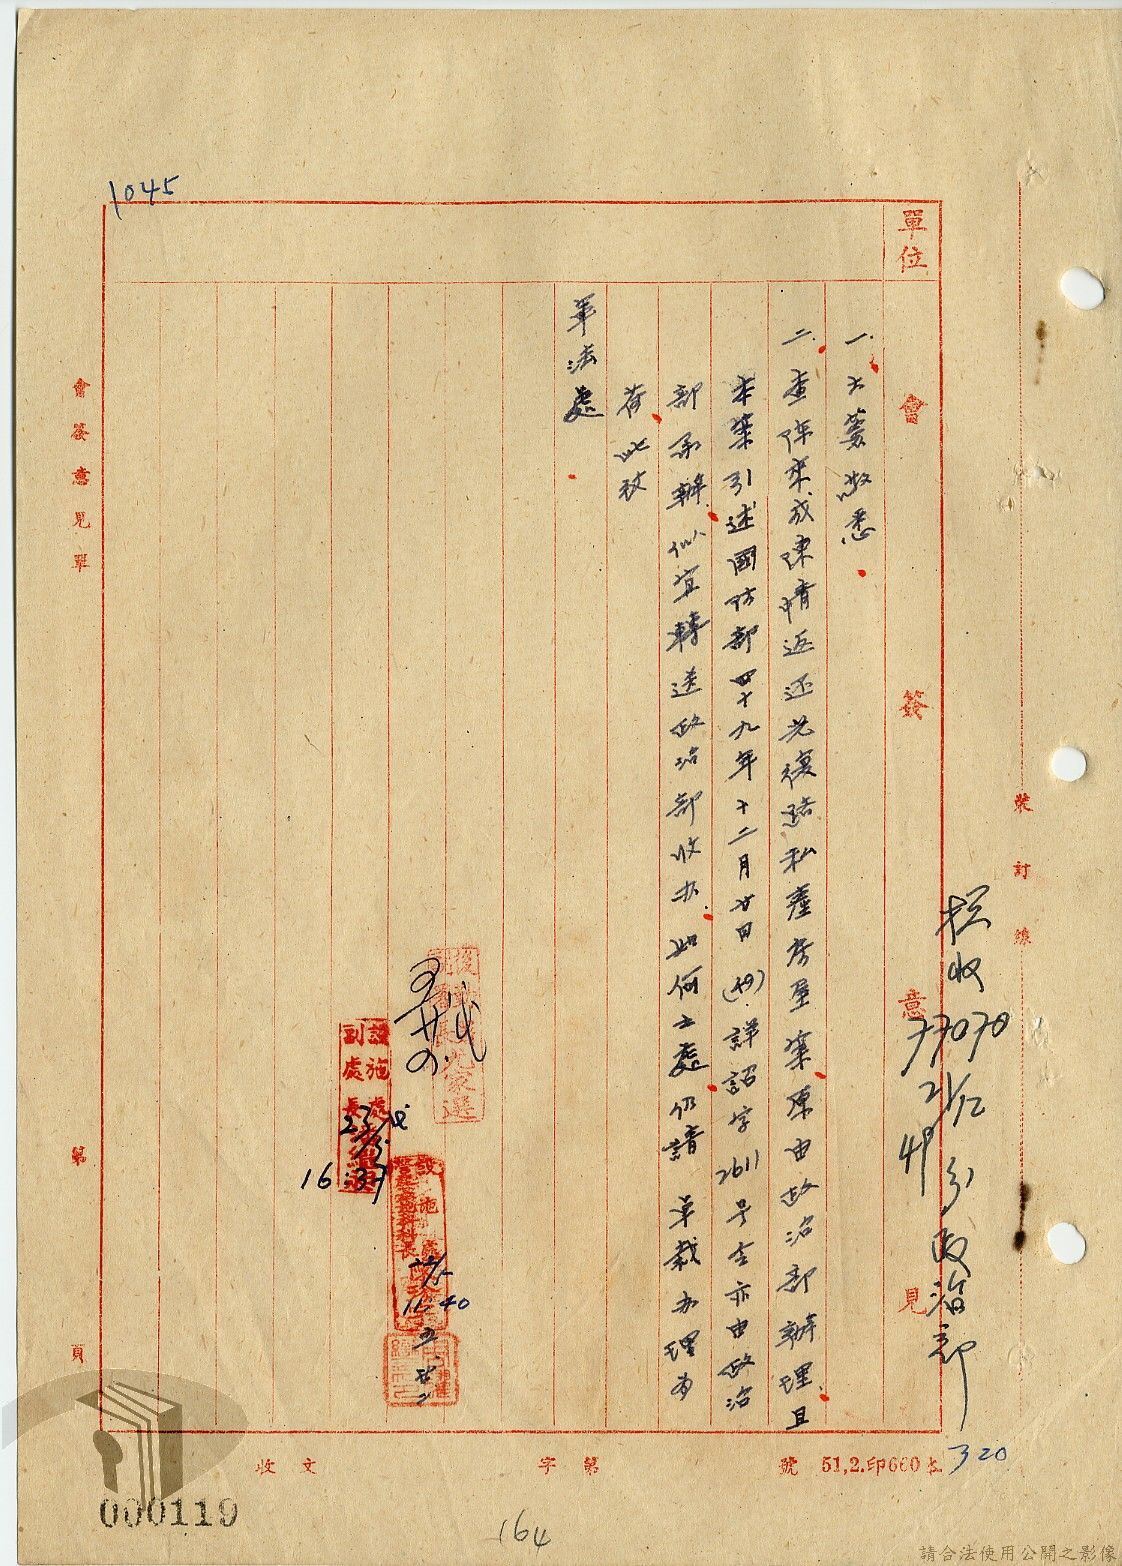 1045
單位
會簽意見
一、大簽敬悉
二、查陳來成陳情返還光復路私產房屋案原由政治部辦理且
本案引述國防部四十九年十二月廿日(49)詳詔字2611号令亦由政治
部承辦似宜轉送政治部收办如何之處仍請 卓裁办理為
荷此致
軍法處
收77070
21/12
49
政治部
320
裝訂線
會簽意見單
第 頁
設施處
副處長
16:37
設施處
科長
22/5
16:40
收文 字第 號
51,2.印660本
000119
164
請合法使用公開之影像